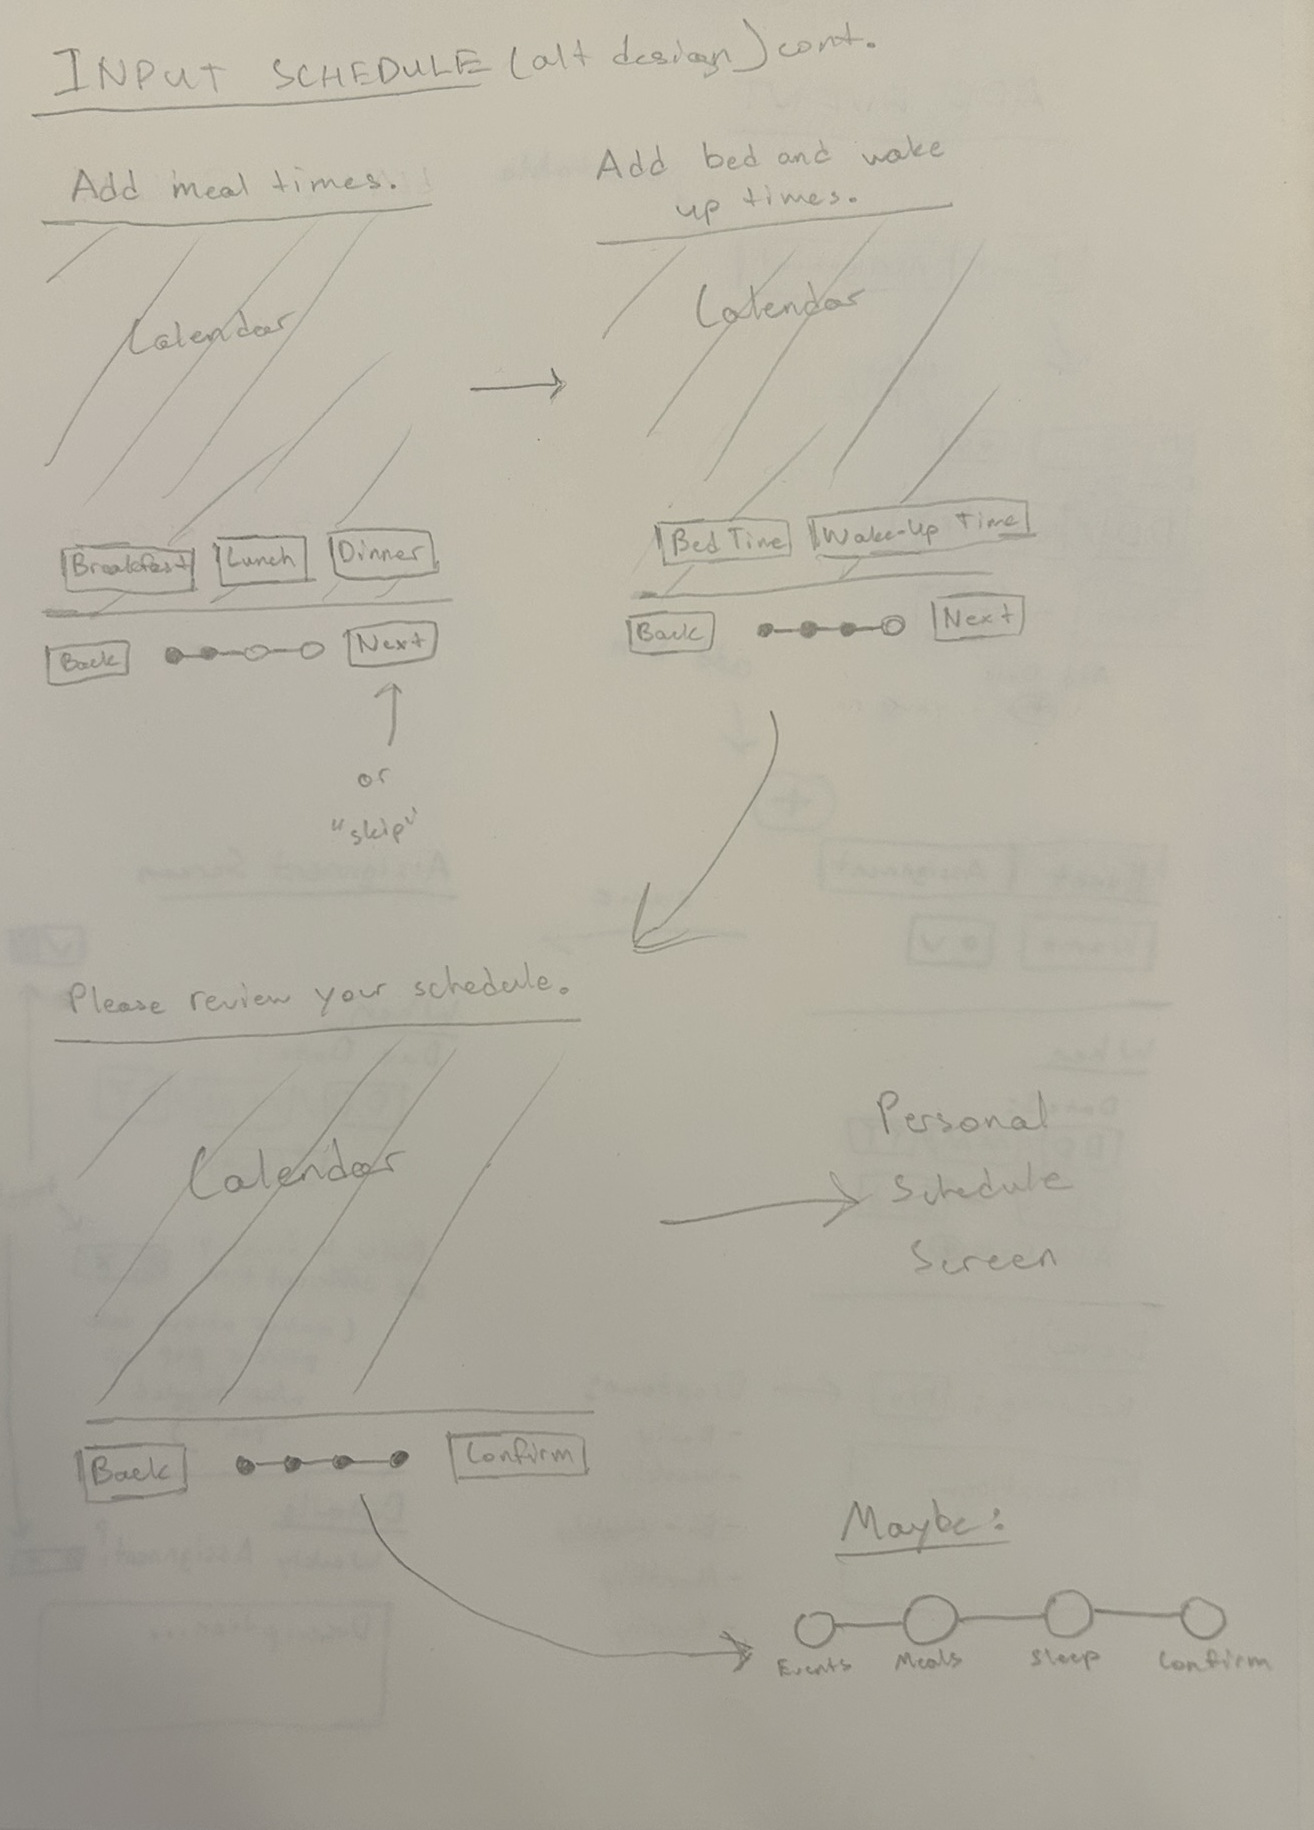 INPUT SCHEDULE (alt design) cont.
Add meal times.
Calendar
Breakfast Lunch Dinner
Back Next
or
"skip"
Add bed and wake
up times.
Calendar
Bed Time Wake-Up Time
Back Next
Please review your schedule.
Calendar
Back Confirm
Personal
Schedule
Screen
Maybe:
Events Meals Sleep Confirm